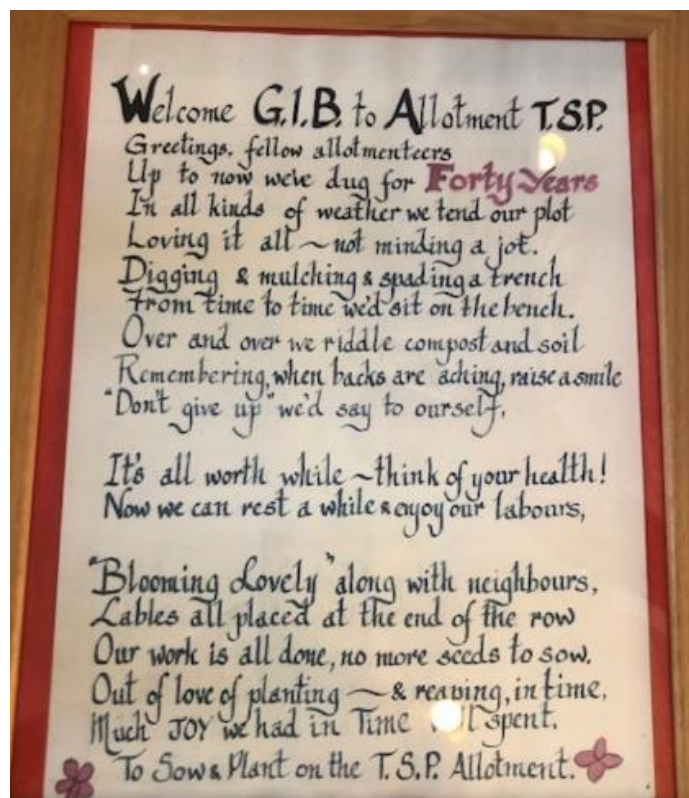 Welcome G.I.B. to Allotment T.S.P.
Greetings, fellow allotmenteers
Up to now we've dug for Forty Years
In all kinds of weather we tend our plot
Loving it all ~ not minding a jot.
Digging & mulching & spading a trench
From time to time we'd sit on the bench.
Over and over we riddle compost and soil
Remembering, when backs are aching, raise a smile
"Don't give up" we'd say to ourself,
It's all worth while ~ think of your health!
Now we can rest a while & enjoy our labours,
"Blooming Lovely" along with neighbours,
Lables all placed at the end of the row
Our work is all done, no more seeds to sow.
Out of love of planting ~ & reaping, in time,
Much JOY we had in Time spent.
To Sow & Plant on the T.S.P. Allotment.